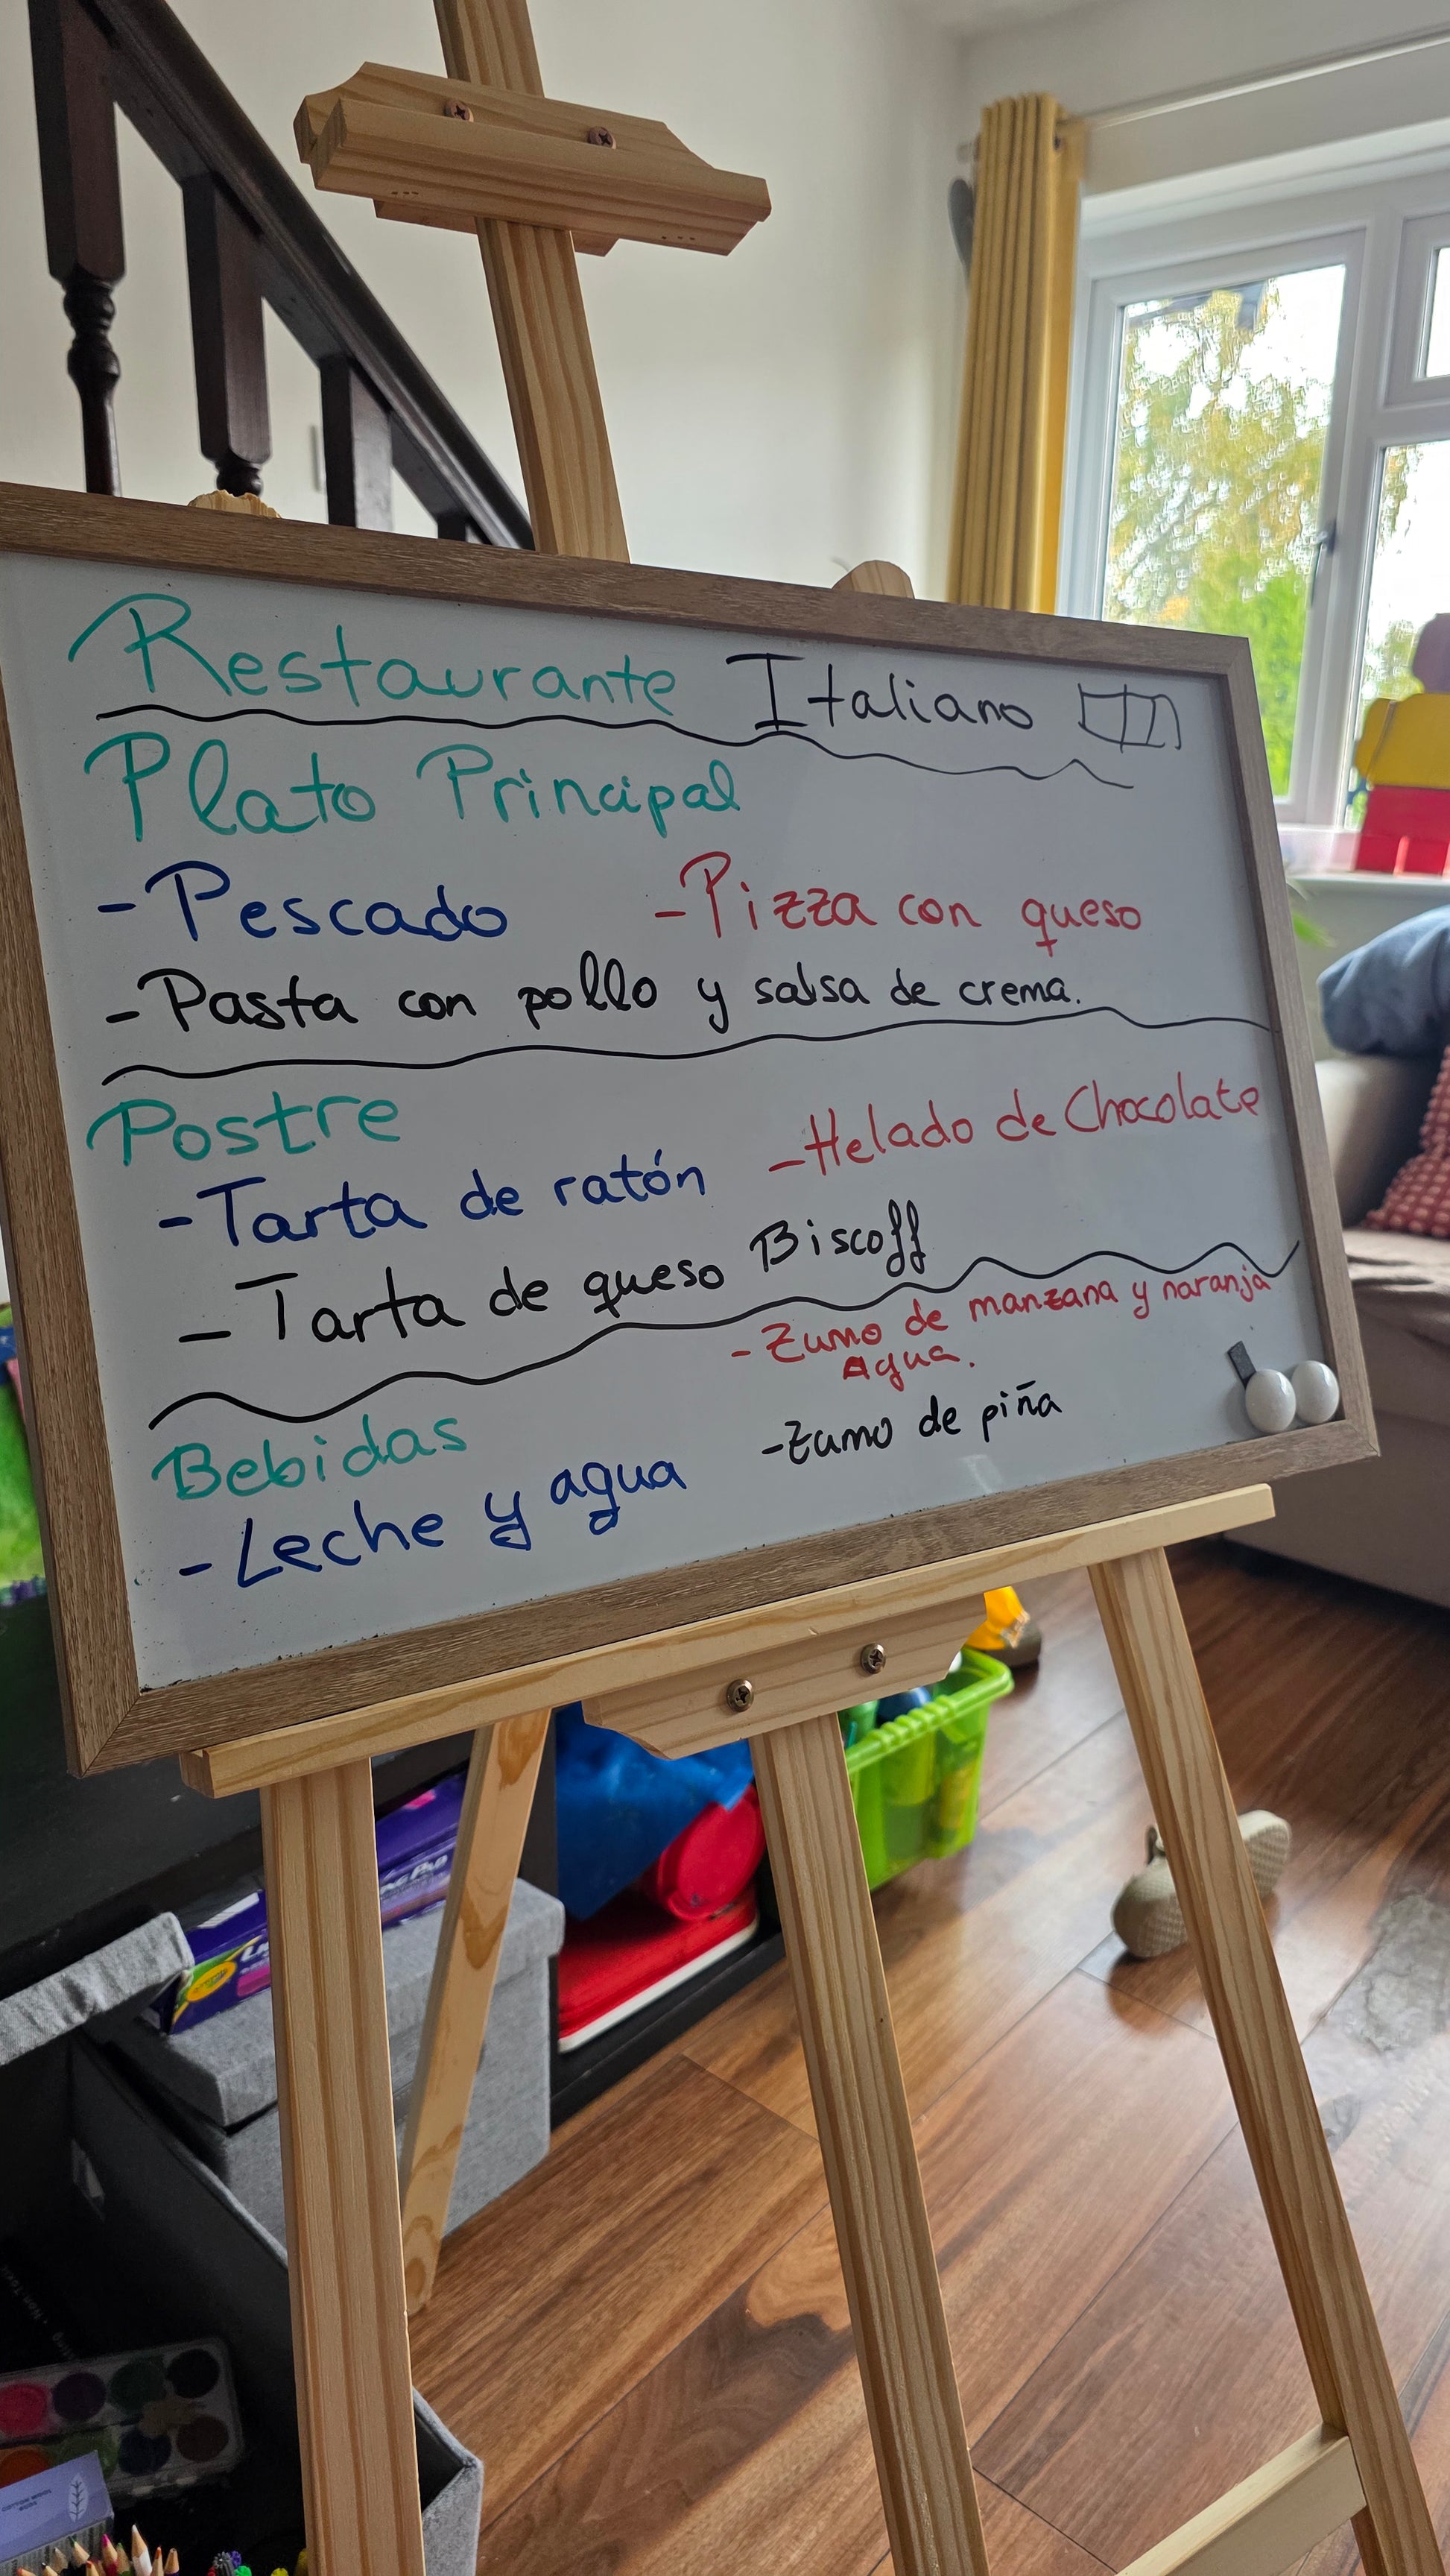 Restaurante Italiano
Plato Principal
-Pescado -Pizza con queso
-Pasta con pollo y salsa de crema.
Postre
-Helado de Chocolate
-Tarta de ratón
-Tarta de queso Biscoff
-Zumo de manzana y naranja
Agua.
Bebidas
-Zumo de piña
-Leche y agua